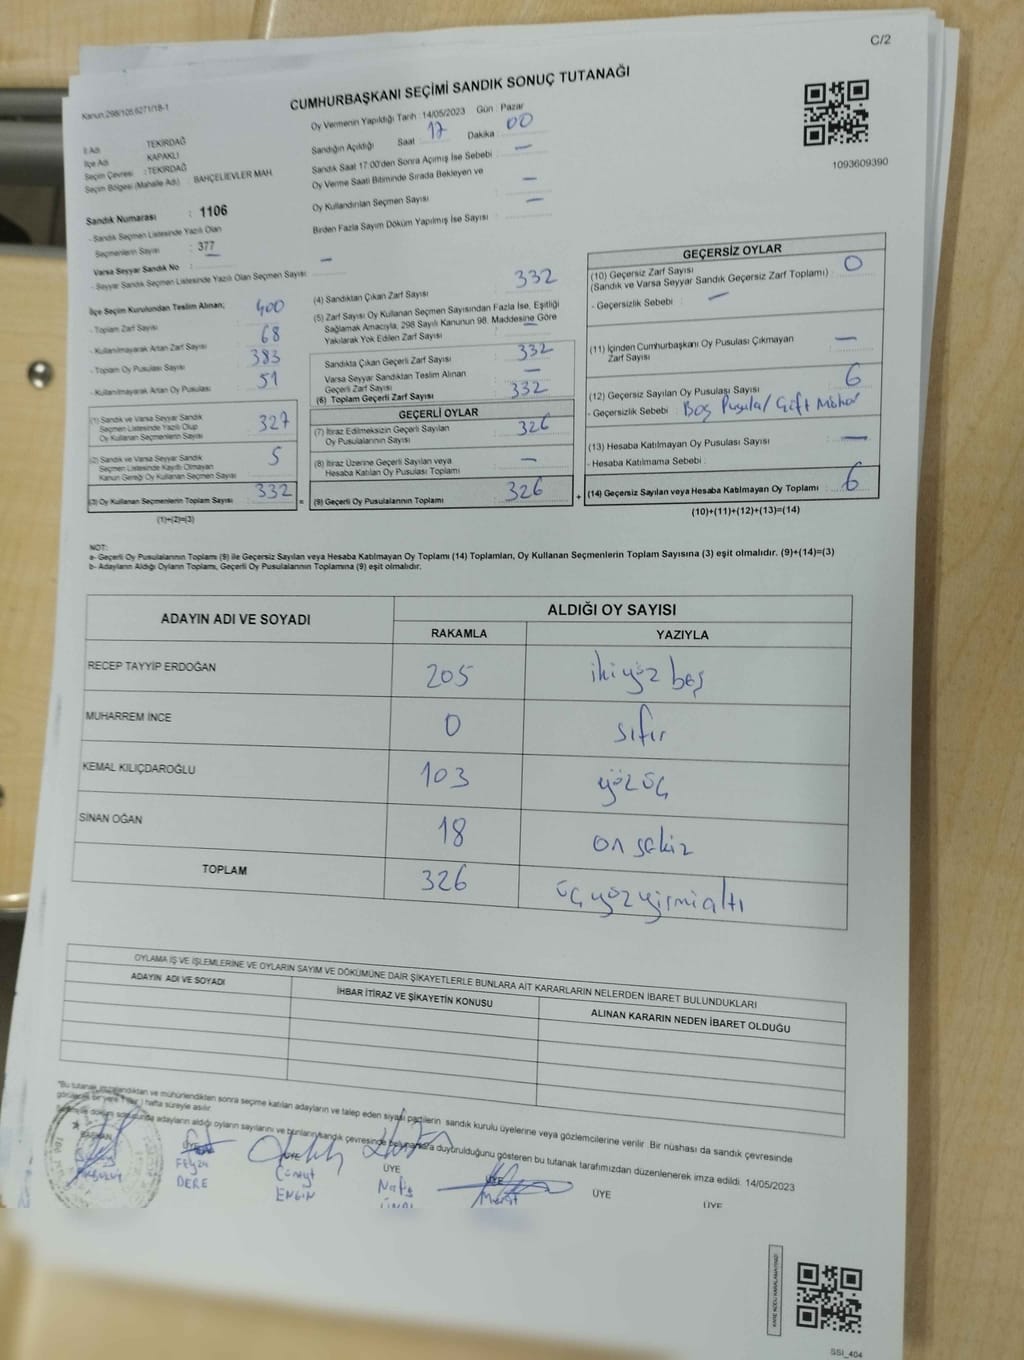 C/2
Kanun:298/105,6271/18-1
CUMHURBAŞKANI SEÇİMİ SANDIK SONUÇ TUTANAĞI
1093609390
İl Adı : TEKİRDAĞ
İlçe Adı : KAPAKLI
Seçim Çevresi : TEKİRDAĞ
Seçim Bölgesi (Mahalle Adı) : BAHÇELİEVLER MAH
Sandık Numarası : 1106
- Sandık Seçmen Listesinde Yazılı Olan
Seçmenlerin Sayısı : 377
Varsa Seyyar Sandık No : —
- Seyyar Sandık Seçmen Listesinde Yazılı Olan Seçmen Sayısı :
Oy Vermenin Yapıldığı Tarih : 14/05/2023 Gün : Pazar
Sandığın Açıldığı Saat 17 Dakika 00
Sandık Saat 17:00'den Sonra Açılmış İse Sebebi : —
Oy Verme Saati Bitiminde Sırada Bekleyen ve
Oy Kullandırılan Seçmen Sayısı : —
Birden Fazla Sayım Döküm Yapılmış İse Sayısı : —
İlçe Seçim Kurulundan Teslim Alınan;
- Toplam Zarf Sayısı : 400
- Kullanılmayarak Artan Zarf Sayısı : 68
- Toplam Oy Pusulası Sayısı : 383
- Kullanılmayarak Artan Oy Pusulası : 51
(1) Sandık ve Varsa Seyyar Sandık
Seçmen Listesinde Yazılı Olup
Oy Kullanan Seçmenlerin Sayısı : 327
(2) Sandık ve Varsa Seyyar Sandık
Seçmen Listesinde Kayıtlı Olmayan
Kanun Gereği Oy Kullanan Seçmen Sayısı : 5
(3) Oy Kullanan Seçmenlerin Toplam Sayısı : 332 =
(1)+(2)=(3)
(4) Sandıktan Çıkan Zarf Sayısı : 332
(5) Zarf Sayısı Oy Kullanan Seçmen Sayısından Fazla İse, Eşitliği
Sağlamak Amacıyla, 298 Sayılı Kanunun 98. Maddesine Göre
Yakılarak Yok Edilen Zarf Sayısı : —
Sandıkta Çıkan Geçerli Zarf Sayısı : 332
Varsa Seyyar Sandıktan Teslim Alınan
Geçerli Zarf Sayısı : —
(6) Toplam Geçerli Zarf Sayısı : 332
GEÇERLİ OYLAR
(7) İtiraz Edilmeksizin Geçerli Sayılan
Oy Pusulalarının Sayısı : 326
(8) İtiraz Üzerine Geçerli Sayılan veya
Hesaba Katılan Oy Pusulası Toplamı : —
(9) Geçerli Oy Pusulalarının Toplamı : 326 +
GEÇERSİZ OYLAR
(10) Geçersiz Zarf Sayısı : 0
(Sandık ve Varsa Seyyar Sandık Geçersiz Zarf Toplamı)
- Geçersizlik Sebebi : —
(11) İçinden Cumhurbaşkanı Oy Pusulası Çıkmayan
Zarf Sayısı : —
(12) Geçersiz Sayılan Oy Pusulası Sayısı : 6
- Geçersizlik Sebebi : Boş Pusula / Çift Mühür
(13) Hesaba Katılmayan Oy Pusulası Sayısı : —
- Hesaba Katılmama Sebebi :
(14) Geçersiz Sayılan veya Hesaba Katılmayan Oy Toplamı : 6
(10)+(11)+(12)+(13)=(14)
NOT:
a- Geçerli Oy Pusulalarının Toplamı (9) ile Geçersiz Sayılan veya Hesaba Katılmayan Oy Toplamı (14) Toplamları, Oy Kullanan Seçmenlerin Toplam Sayısına (3) eşit olmalıdır. (9)+(14)=(3)
b- Adayların Aldığı Oyların Toplamı, Geçerli Oy Pusulalarının Toplamına (9) eşit olmalıdır.
ADAYIN ADI VE SOYADI ALDIĞI OY SAYISI
RAKAMLA YAZIYLA
RECEP TAYYİP ERDOĞAN 205 ikiyüz beş
MUHARREM İNCE 0 sıfır
KEMAL KILIÇDAROĞLU 103 yüz üç
SİNAN OĞAN 18 on sekiz
TOPLAM 326 üç yüz yirmi altı
OYLAMA İŞ VE İŞLEMLERİNE VE OYLARIN SAYIM VE DÖKÜMÜNE DAİR ŞİKAYETLERLE BUNLARA AİT KARARLARIN NELERDEN İBARET BULUNDUKLARI
ADAYIN ADI VE SOYADI İHBAR İTİRAZ VE ŞİKAYETİN KONUSU ALINAN KARARIN NEDEN İBARET OLDUĞU
*Bu tutanak imzalandıktan ve mühürlendikten sonra seçime katılan adayların ve talep eden siyasi partilerin sandık kurulu üyelerine veya gözlemcilerine verilir. Bir nüshası da sandık çevresinde
görülecek bir yere 1 (bir) hafta süreyle asılır.
döküm sonucunda adayların aldığı oyların sayılarını ve bunların sandık çevresinde duyurulduğunu gösteren bu tutanak tarafımızdan düzenlenerek imza edildi. 14/05/2023
BAŞKAN ÜYE ÜYE ÜYE ÜYE ÜYE ÜYE
FEYZA Cüneyt Nafiş Murat
DERE ENGİN ÜNAL
SSI_404